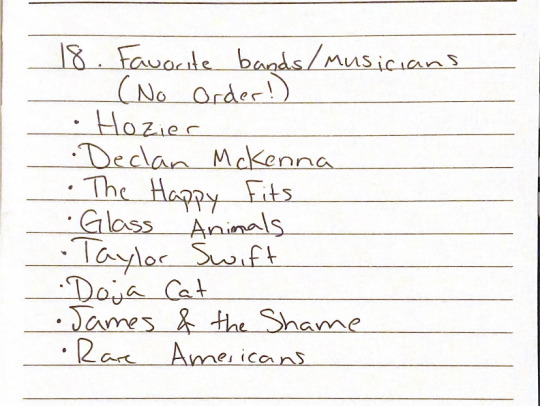 18. Favorite bands/musicians
(No Order!)
• Hozier
• Declan McKenna
• The Happy Fits
• Glass Animals
• Taylor Swift
• Doja Cat
• James & the Shame
• Rare Americans